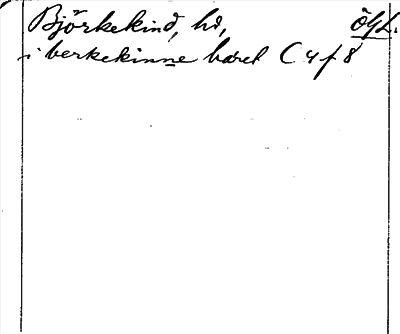 Björkekind, hd, ÖgL.
i berkekinne hæret C 4 f 8